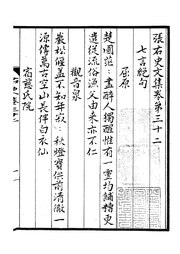 張右史文集卷第三十二
七言絕句
屈原
楚國茫〻盡醉人獨醒惟有一靈均餔糟更
遣從流俗漁父由來亦不仁
觀音泉
巖松偃蓋不知年寂〻秋燈寶供前清徹一
源傳萬古空山伴白衣仙
宿慈氏院